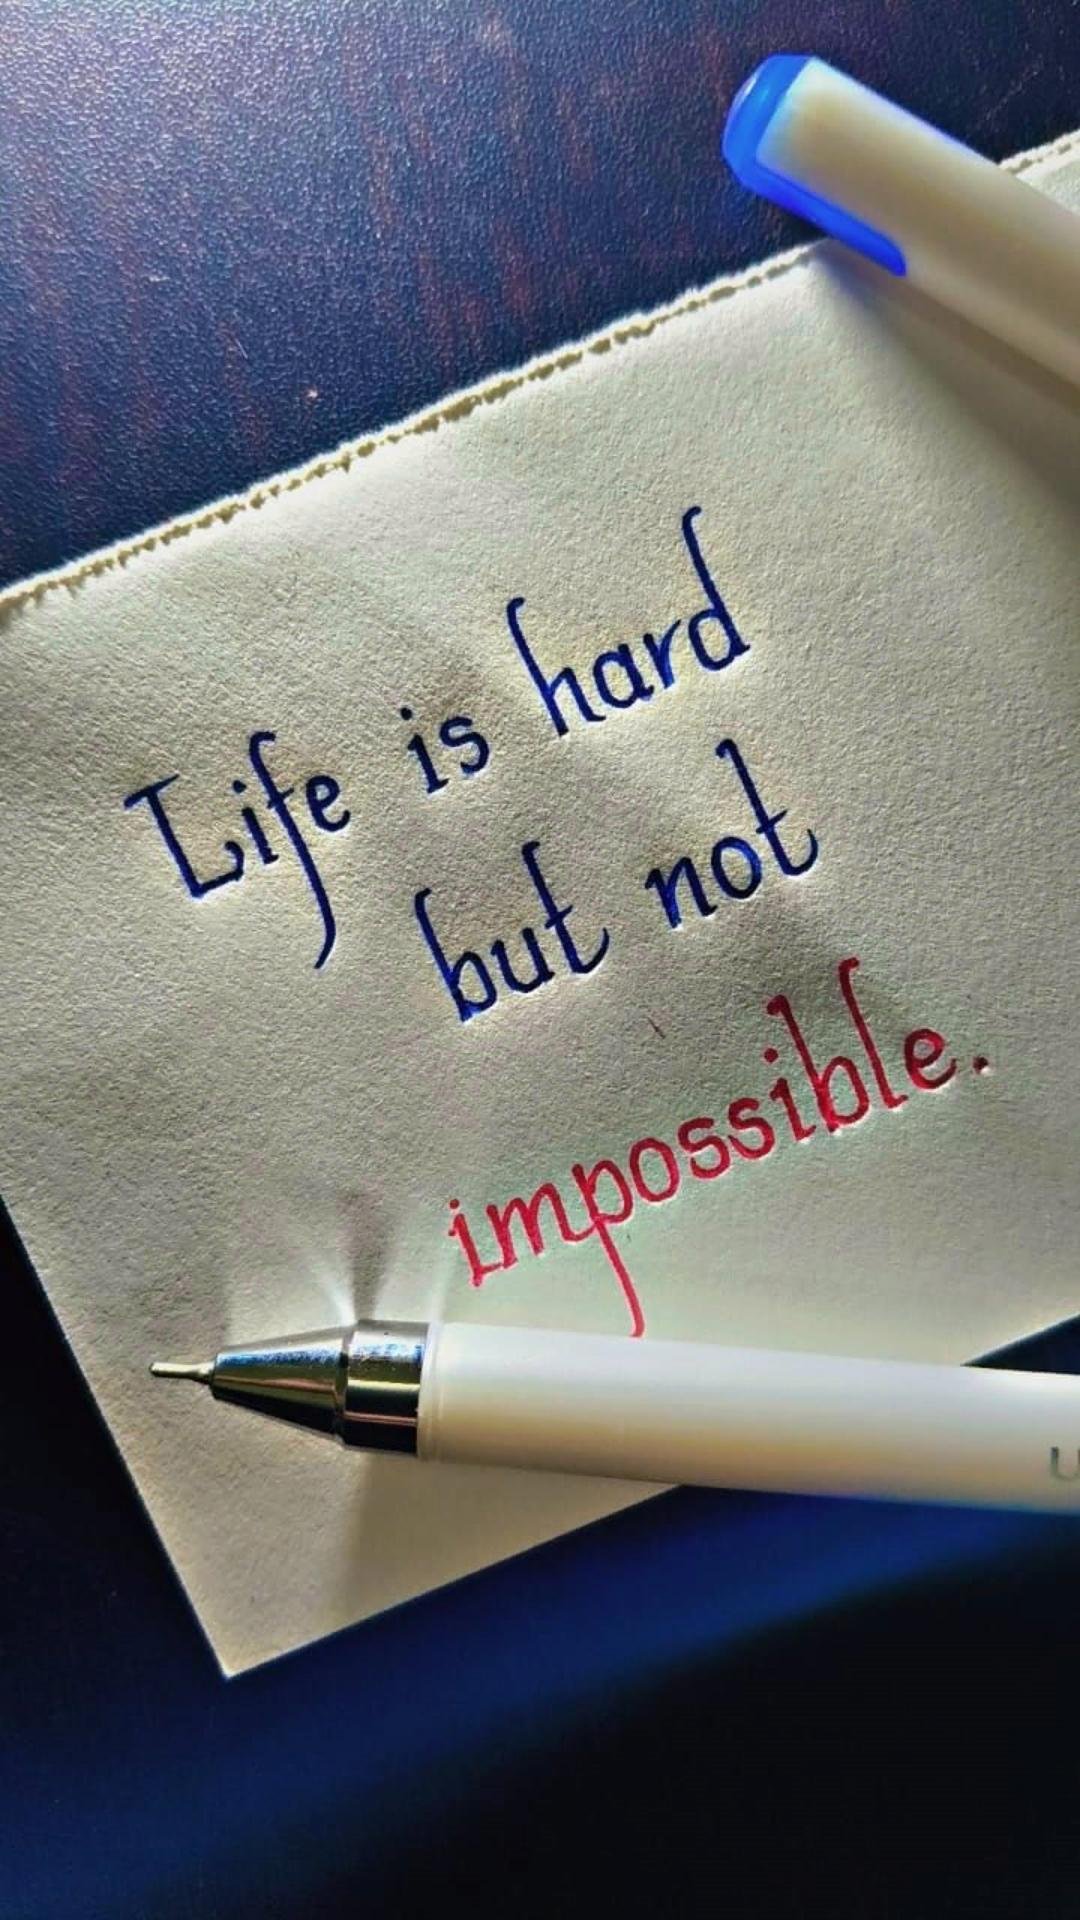 Life is hard
but not
impossible.
U